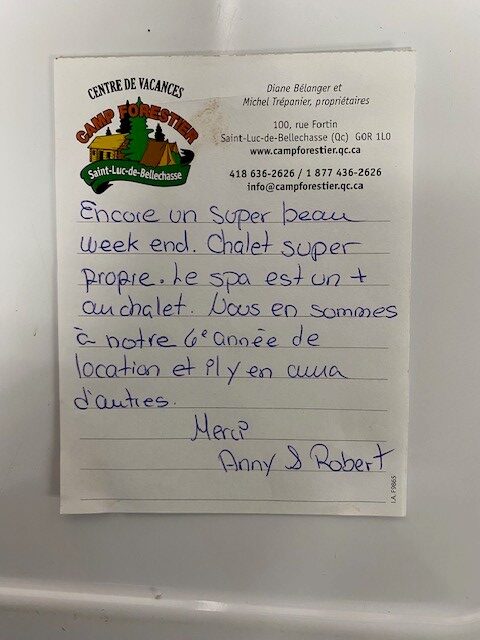 CENTRE DE VACANCES
CAMP FORESTIER
Saint-Luc-de-Bellechasse
Diane Bélanger et
Michel Trépanier, propriétaires
100, rue Fortin
Saint-Luc-de-Bellechasse (Qc) G0R 1L0
www.campforestier.qc.ca
418 636-2626 / 1 877 436-2626
info@campforestier.qc.ca
Encore un super beau
week end. Chalet super
propre. Le spa est un +
au chalet. Nous en sommes
à notre 6e année de
location et il y en aura
d'autres.
Merci
Anny & Robert
I.A. F9865